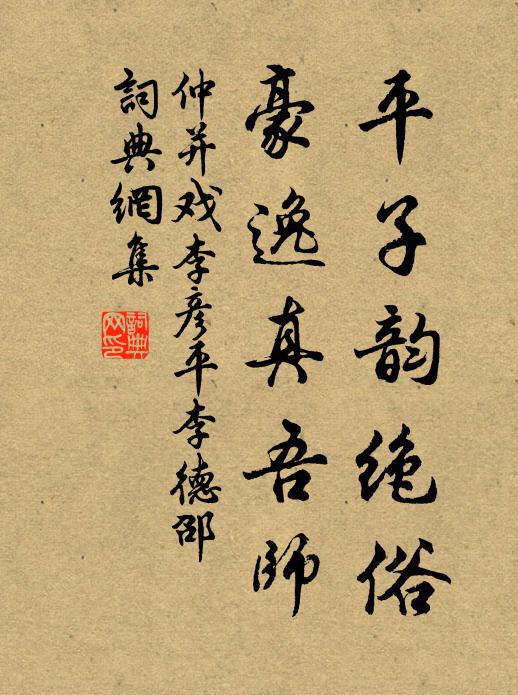 平子韵绝俗
豪逸真吾师
仲并戏李彦平李德邵
詞典網集
詞典网印